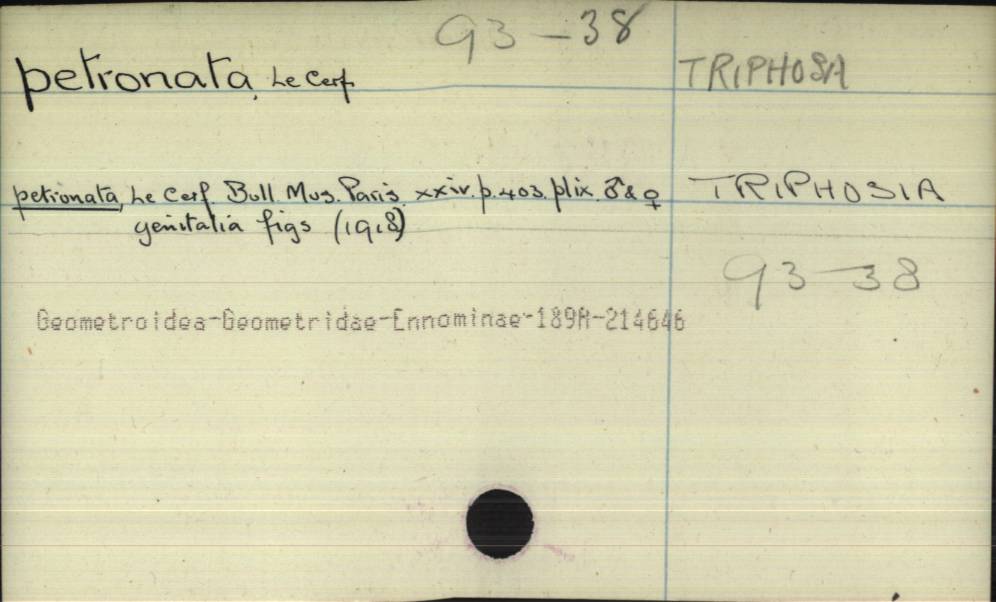 93-38
petronata, Le Cerf TRIPHOSA
petronata, Le Cerf. Bull. Mus. Paris. xxiv. p. 403. pl ix. ♂ & ♀ TRIPHOSIA
genitalia figs (1918)
93-38
Geometroidea-Geometridae-Ennominae-189A-214646